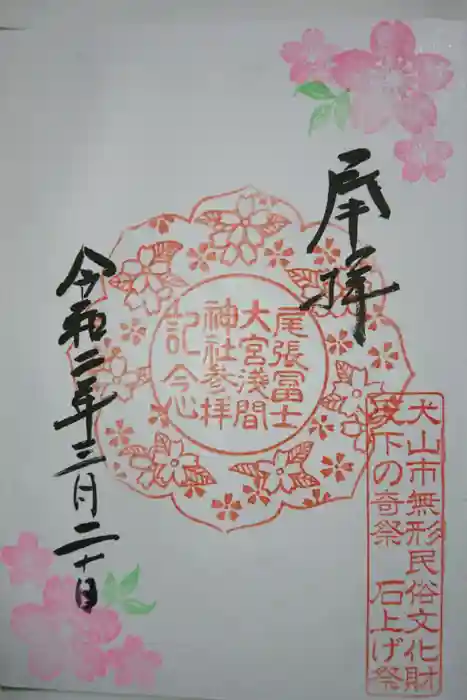 奉拝
尾張冨士
大宮淺間
神社参拝
記念
令和二年三月二十日
犬山市無形民俗文化財
天下の奇祭 石上げ祭